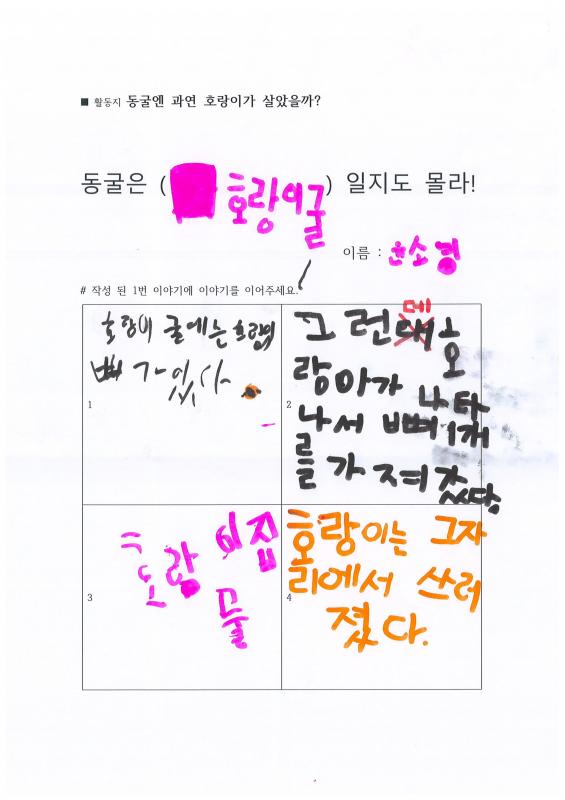 ■ 활동지 동굴엔 과연 호랑이가 살았을까?
동굴은 ( 호랑이굴 ) 일지도 몰라!
이름 : 윤소령
# 작성 된 1번 이야기에 이야기를 이어주세요.
1
호랑이 굴에는 호랑이
뼈 가 있다
2
그런데 호
랑이가 나타
나서 뼈 1개
를 가져갔다.
3
호랑이 집
4
호랑이는 그자
리에서 쓰러
졌다.